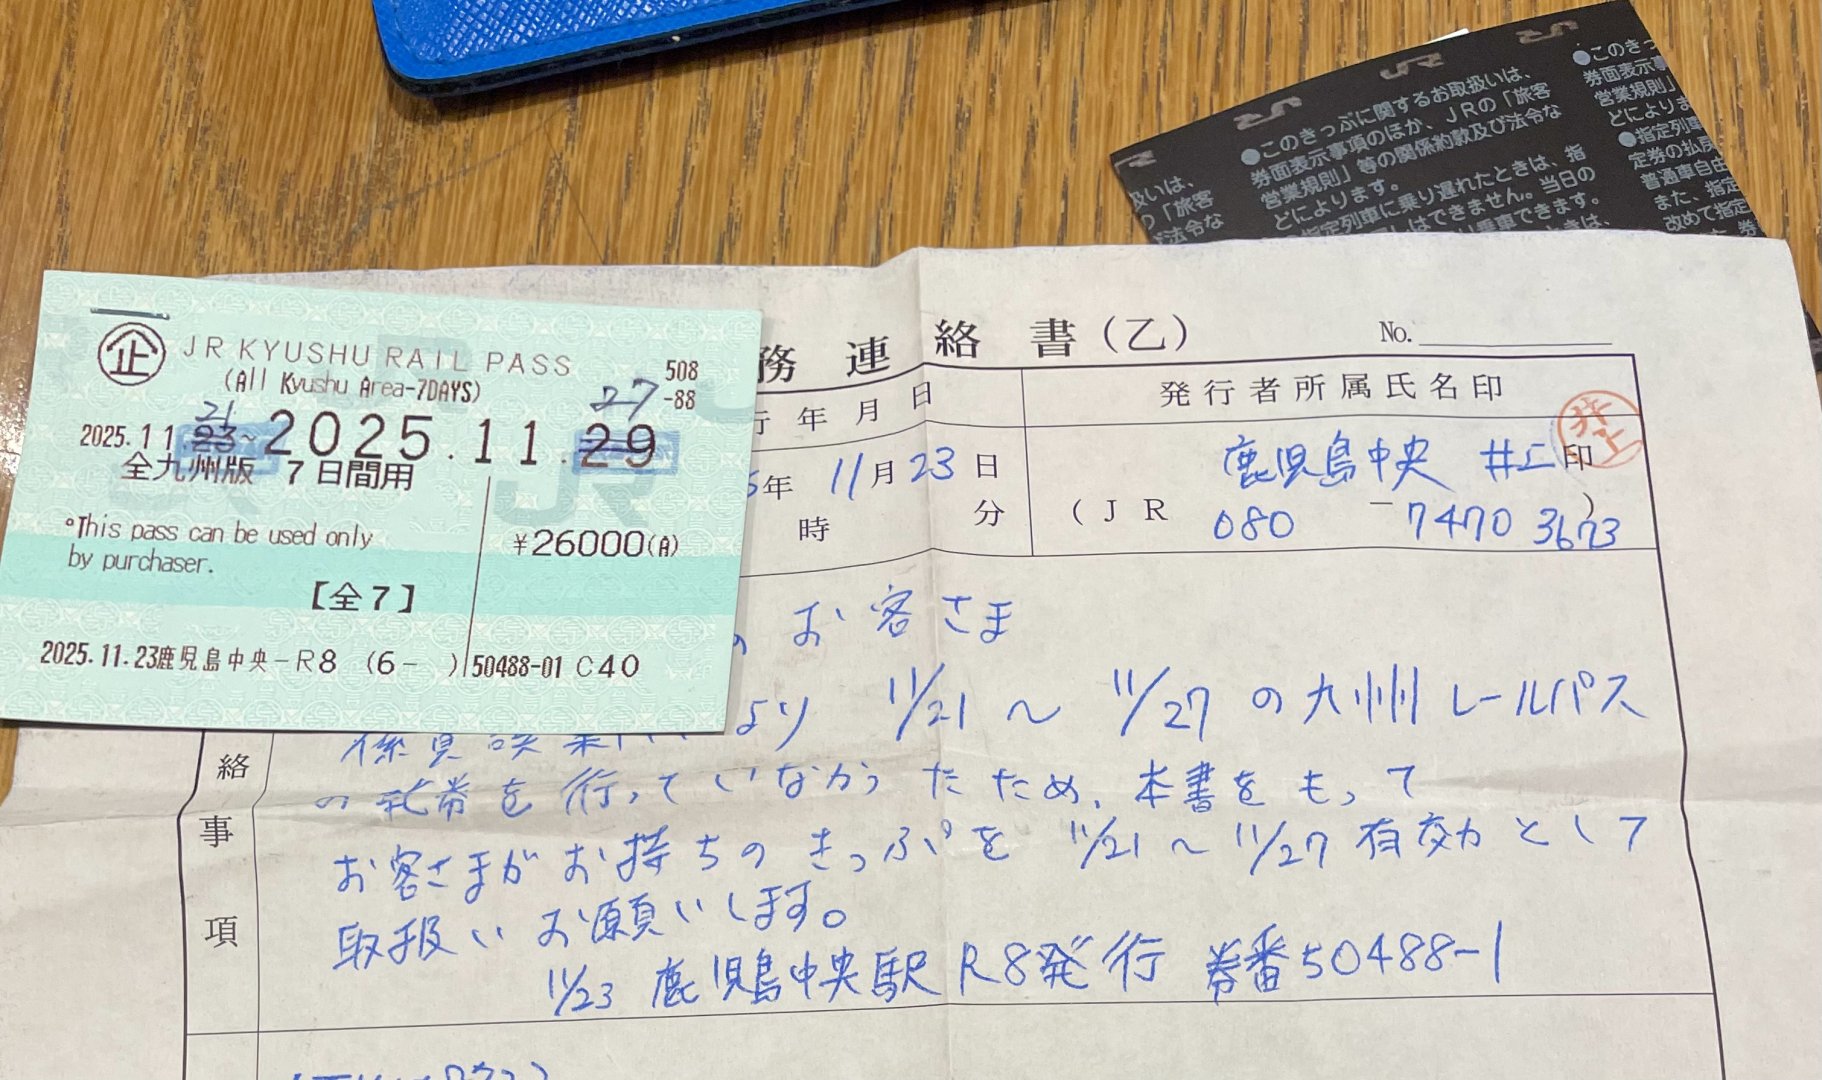 企
JR KYUSHU RAIL PASS
(All Kyushu Area-7DAYS)
508
-88
21
27
2025.11.23~2025.11.29
全九州版 7日間用
°This pass can be used only
by purchaser.
¥26000(A)
【全7】
2025.11.23鹿児島中央-R8 (6- ) 50488-01 C40
務連絡書(乙)
No.
行年月日
発行者所属氏名印
年 11月23日
時 分
鹿児島中央 井上 印
井上
(JR 080 - 7470 3673)
お客さま
より 11/21~11/27の九州レールパス
を行っていなかったため、本書をもって
お客さまがお持ちのきっぷを11/21~11/27有効として
取扱いお願いします。
11/23 鹿児島中央駅R8発行 券番50488-1
絡
事
項
JR
●このきっぷに関するお取扱いは、
券面表示事項のほか、JRの「旅客
営業規則」等の関係約款及び法令な
どによります。
指定列車に乗り遅れたときは、指
はできません。当日の
乗車できます。
扱いは、
の「旅客
び法令な
●このきっ
券面表示事
営業規則」
どによりま
●指定列車
定券の払戻
普通車自由
また、指定
改めて指定